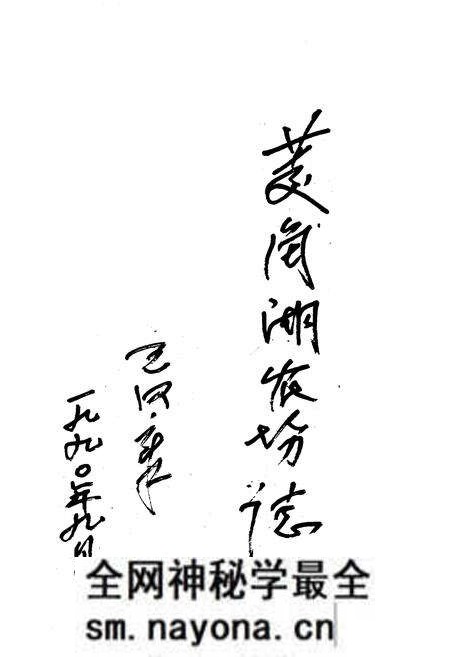 菱角湖农场誌
一九九〇年九月
全网神秘学最全
sm.nayona.cn